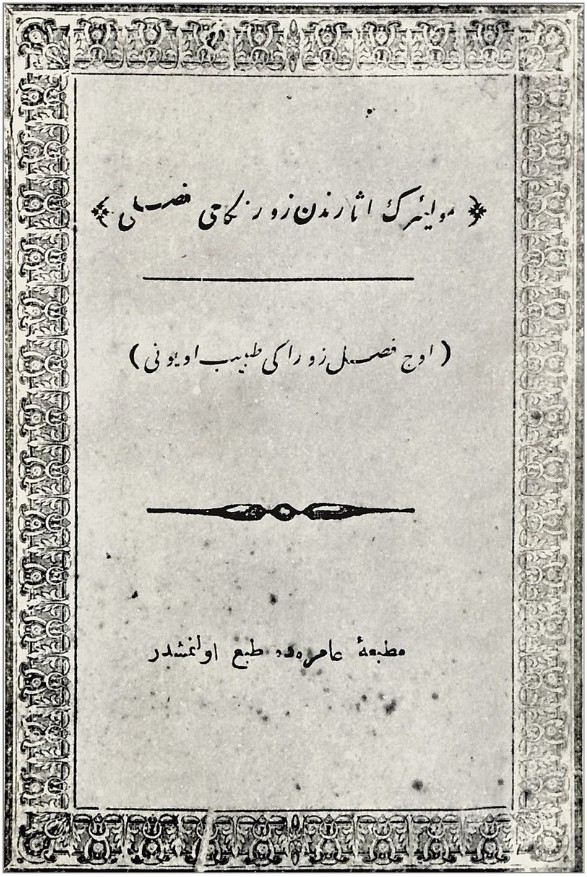 موليئرك اثارندن زور نكاحى فصلى
(اوچ فصل زوراكى طبيب اويونى)
مطبعهٔ عامره‌ده طبع اولنمشدر